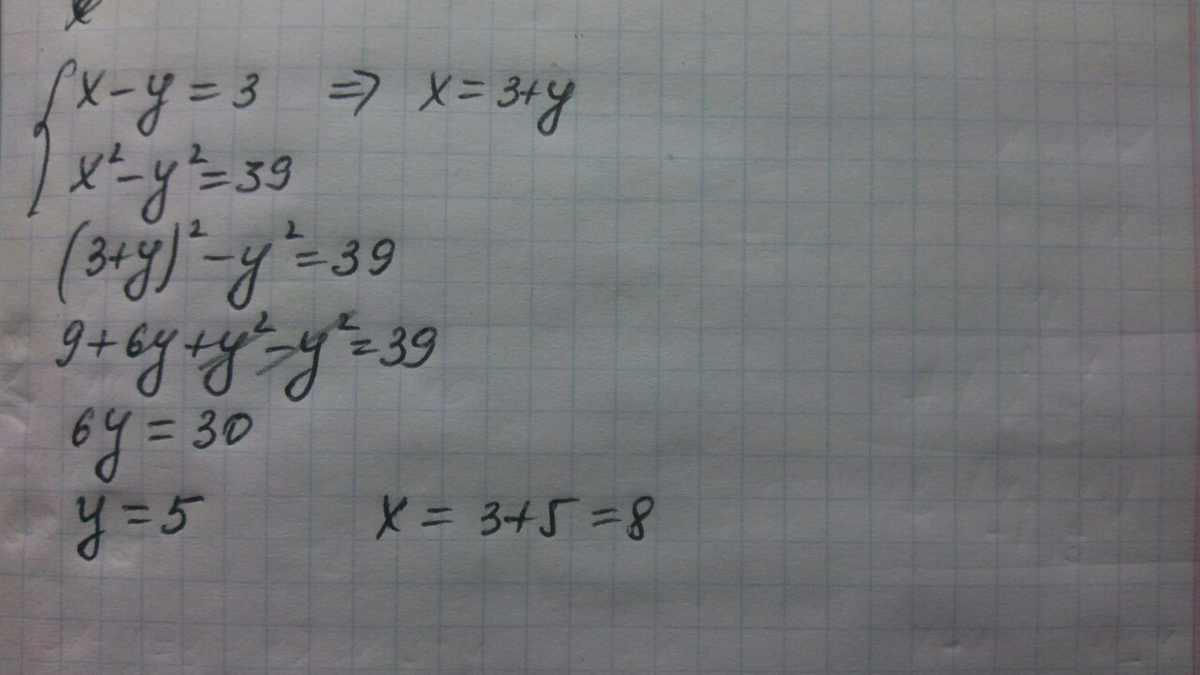 x-y=3 => x=3+y
x²-y²=39
(3+y)²-y²=39
9+6y+y²-y²=39
6y=30
y=5 x=3+5=8